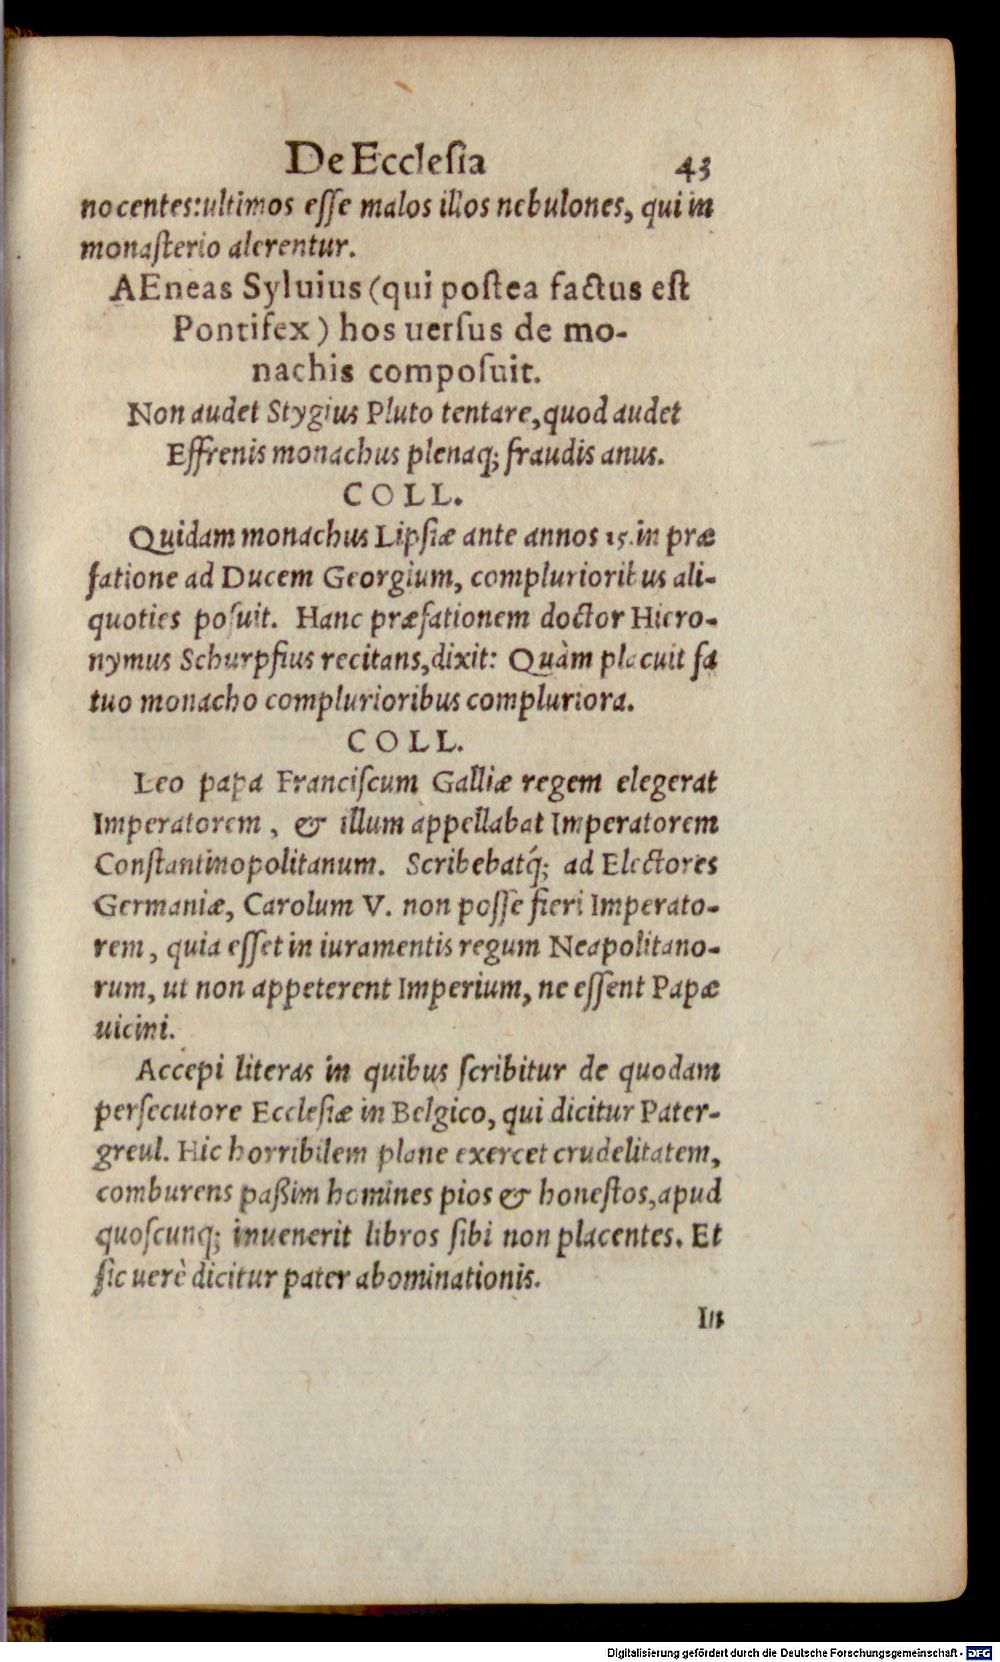 De Eccleſia 43
nocentes: ultimos eſſe malos illos nebulones, qui in
monaſterio alerentur.
AEneas Syluius (qui poſtea factus eſt
Pontifex) hos uerſus de mo-
nachis compoſuit.
Non audet Stygius Pluto tentare, quod audet
Effrenis monachus plenaq; fraudis anus.
COLL.
Quidam monachus Lipſiæ ante annos 15. in præ
fatione ad Ducem Georgium, complurioribus ali-
quoties poſuit. Hanc præfationem doctor Hiero-
nymus Schurpfius recitans, dixit: Quàm placuit fa
tuo monacho complurioribus compluriora.
COLL.
Leo papa Franciſcum Galliæ regem elegerat
Imperatorem, & illum appellabat Imperatorem
Conſtantinopolitanum. Scribebatq́; ad Electores
Germaniæ, Carolum V. non poſſe fieri Imperato-
rem, quia eſſet in iuramentis regum Neapolitano-
rum, ut non appeterent Imperium, ne eſſent Papæ
uicini.
Accepi literas in quibus ſcribitur de quodam
perſecutore Eccleſiæ in Belgico, qui dicitur Pater-
greul. Hic horribilem plane exercet crudelitatem,
comburens paßim homines pios & honeſtos, apud
quoſcunq; inuenerit libros ſibi non placentes. Et
ſic uerè dicitur pater abominationis.
In
Digitalisierung gefördert durch die Deutsche Forschungsgemeinschaft - DFG